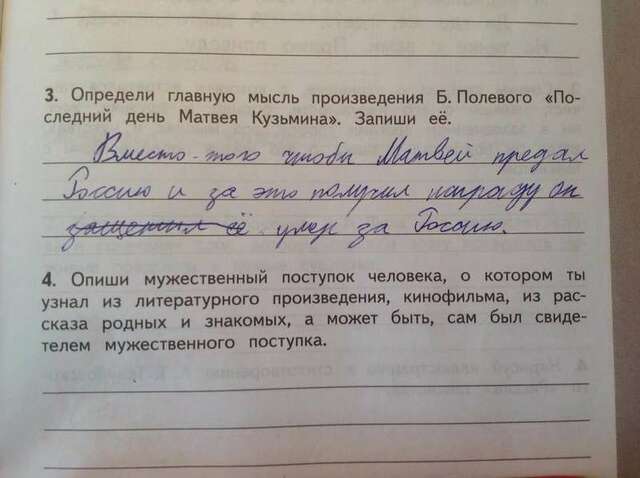 3. Определи главную мысль произведения Б. Полевого «По-
следний день Матвея Кузьмина». Запиши её.
Вместо того чтобы Матвей предал
Россию и за это получил награду он
защетил её умер за Россию.
4. Опиши мужественный поступок человека, о котором ты
узнал из литературного произведения, кинофильма, из рас-
сказа родных и знакомых, а может быть, сам был свиде-
телем мужественного поступка.